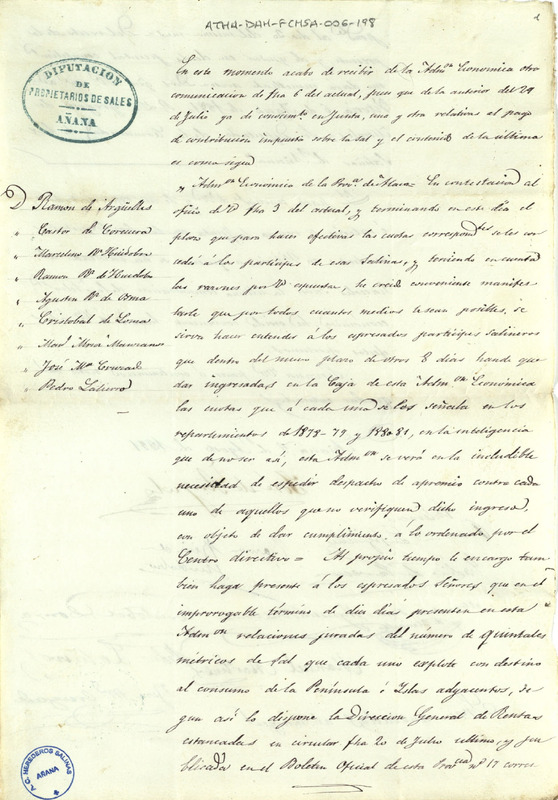 ATHA-DAH-FCMSA-006-198
DIPUTACION
DE
PROPIETARIOS DE SALES
AÑANA
En este momento acabo de recibir de la Admon Economica otra
comunicacion de fha 6 del actual, pues que de la anterior del 29
de Julio ya di conocimto en Junta, una y otra relativas al pago
de contribucion impuesta sobre la sal y el contenido de la última
es como sigue
"Admon Económica de la Prova de Alava= En contestacion al
oficio de V fha 3 del actual, y terminando en este dia el
plazo que para hacer efectivas las cuotas correspondtes se les con-
cedió á los participes de esas Salinas, y teniendo en cuenta
las razones por V espuestas, he creido conveniente manifes-
tarle que por todos cuantos medios le sean posibles, se
sirva hacer entender á los espresados participes salineros
que dentro del nuevo plazo de otros 8 dias han de que-
dar ingresadas en la Caja de esta Admon Económica
las cuotas que á cada uno se les señala en los
repartimientos de 1878-79 y 1880-81, en la inteligencia
que de no ser asi, esta Admon se verá en la includible
necesidad de espedir despacho de apremio contra cada
uno de aquellos que no verifiquen dicho ingreso,
con objeto de dar cumplimiento á lo ordenado por el
Centro directivo = Al propio tiempo le encargo tam-
bien haga presente á los espresados Señores que en el
improrogable término de diez dias presenten en esta
Admon relaciones juradas del número de quintales
métricos de sal que cada uno explote con destino
al consumo de la Península é Islas adyacentes, se-
gun asi lo dispone la Direccion General de Rentas
estancadas en circular fha 20 de Julio último, y pu-
blicada en el Boletin Oficial de esta Provcia nº 17 corres-
D Ramon de Argüelles
" Castor de Corcuera
" Marcelino Mz Huidobro
" Ramon Mz de Huidobro
" Agustin Mz de Osma
" Cristobal de Loma
" José Ma
" Pedro
T.C. HEREDEROS SALINAS
AÑANA